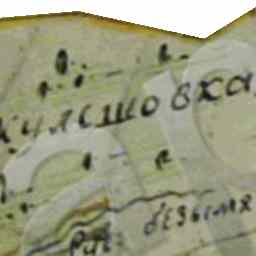 кулешовка
Руч. безымя